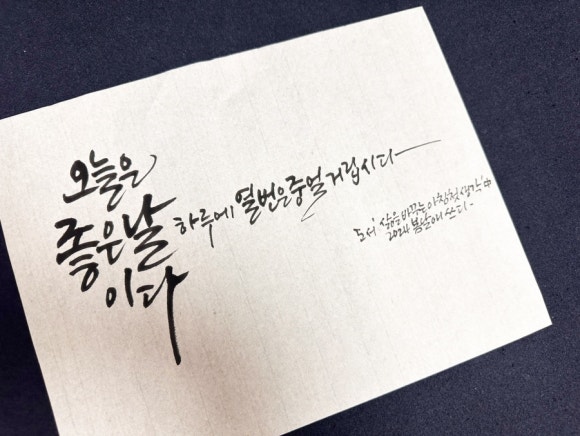 오늘은
좋은날
이다
하루에 열번은 중얼거립시다
도서 '삶을 바꾸는 아침 첫 생각' 中
2024 봄날에 쓰다-